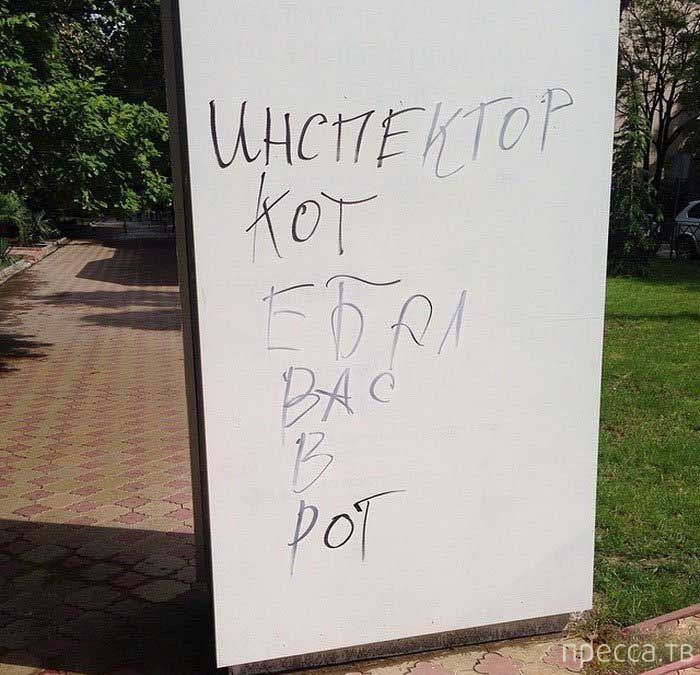 ИНСПЕКТОР
КОТ
ЕБАЛ
ВАС
В
РОТ
пресса.тв